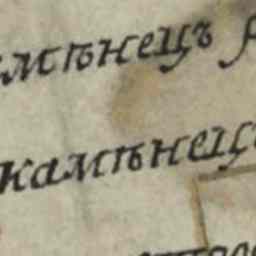 мѣнецъ
камѣнец